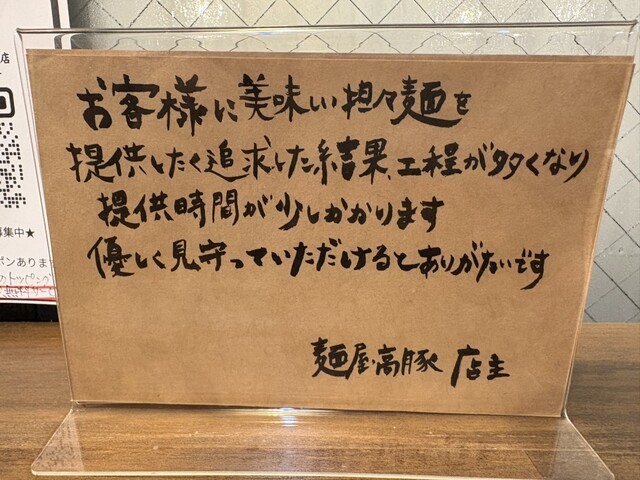 お客様に美味しい担々麺を
提供したく追求した結果、工程が多くなり
提供時間が少しかかります
優しく見守っていただけるとありがたいです
麺屋高豚 店主
店
募集中★